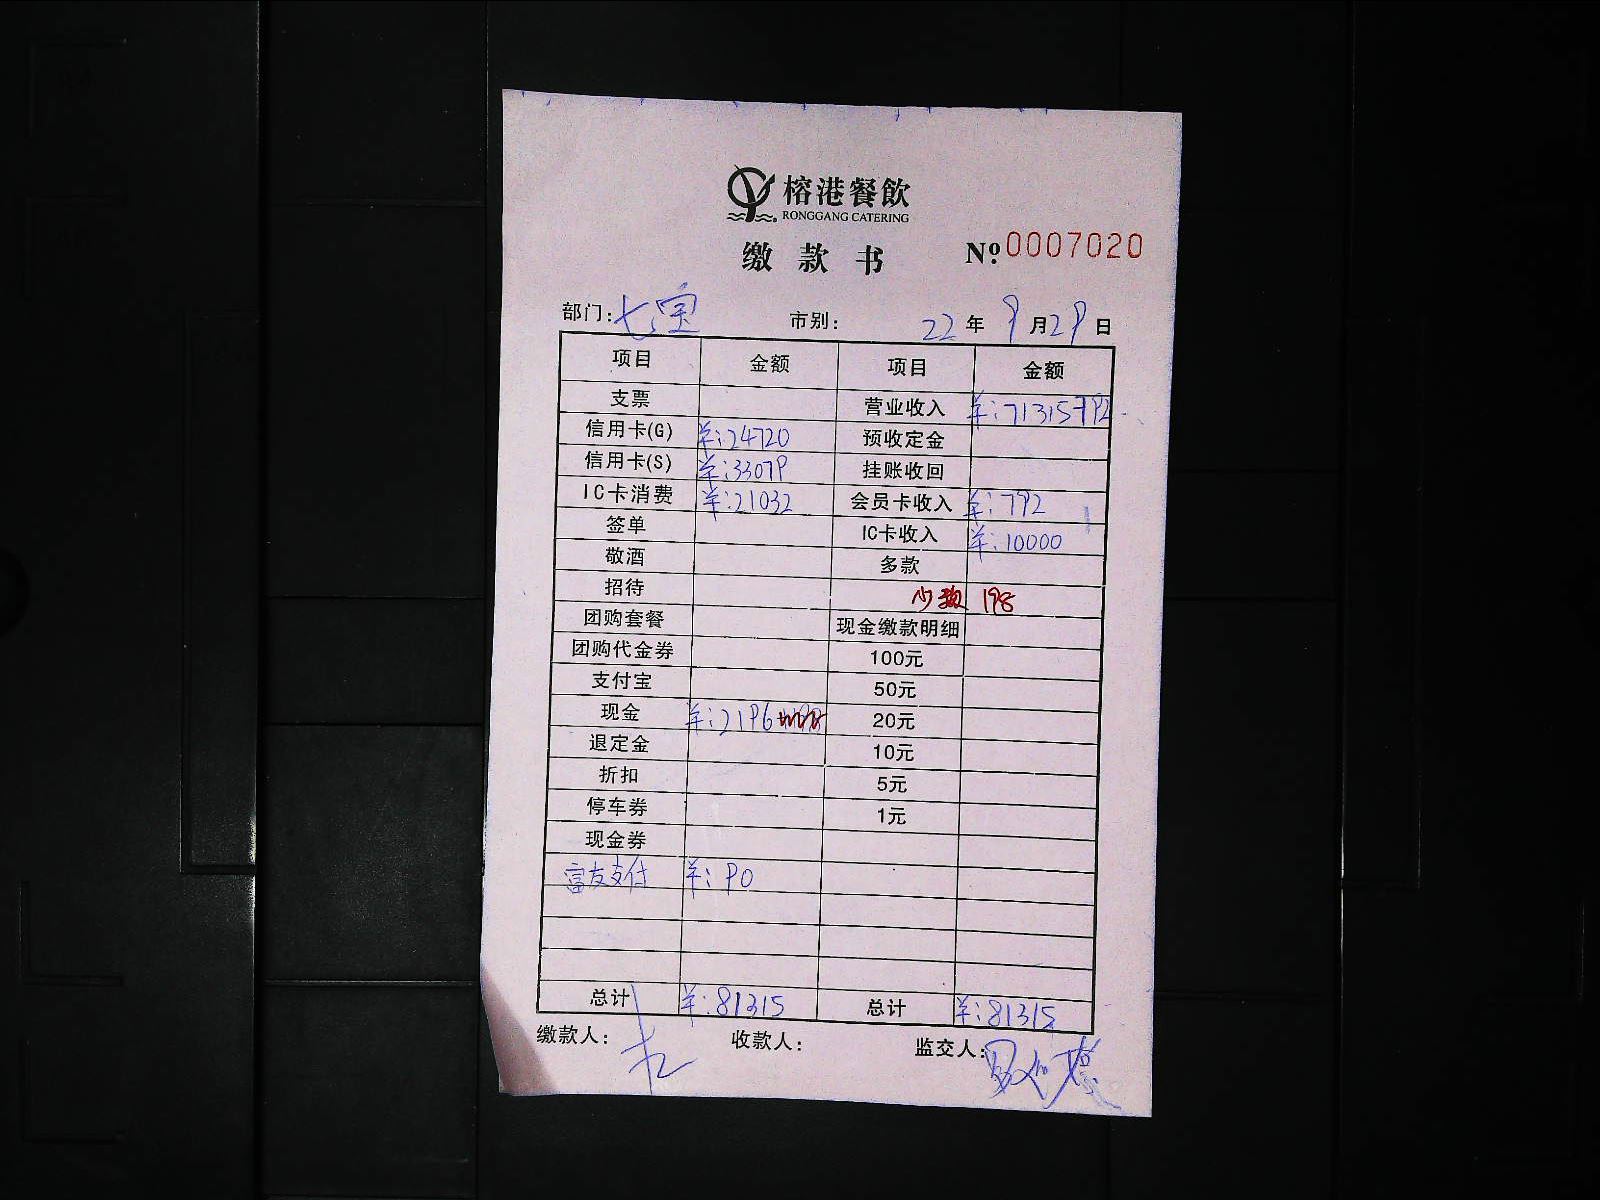 榕港餐飲
RONGGANG CATERING
缴款书 No:0007020
部门:七宝 市别: 22年9月29日
项目 金额 项目 金额
支票 营业收入 羊:71315-792
信用卡(G) 羊:24720 预收定金
信用卡(S) 羊:33079 挂账收回
IC卡消费 羊:21032 会员卡收入 羊:792
签单 IC卡收入 羊:10000
敬酒 多款
招待 少款 198
团购套餐 现金缴款明细
团购代金券 100元
支付宝 50元
现金 羊:2196 20元
退定金 10元
折扣 5元
停车券 1元
现金券
富友支付 羊:90
总计 羊:81315 总计 羊:81315
缴款人: 收款人: 监交人: